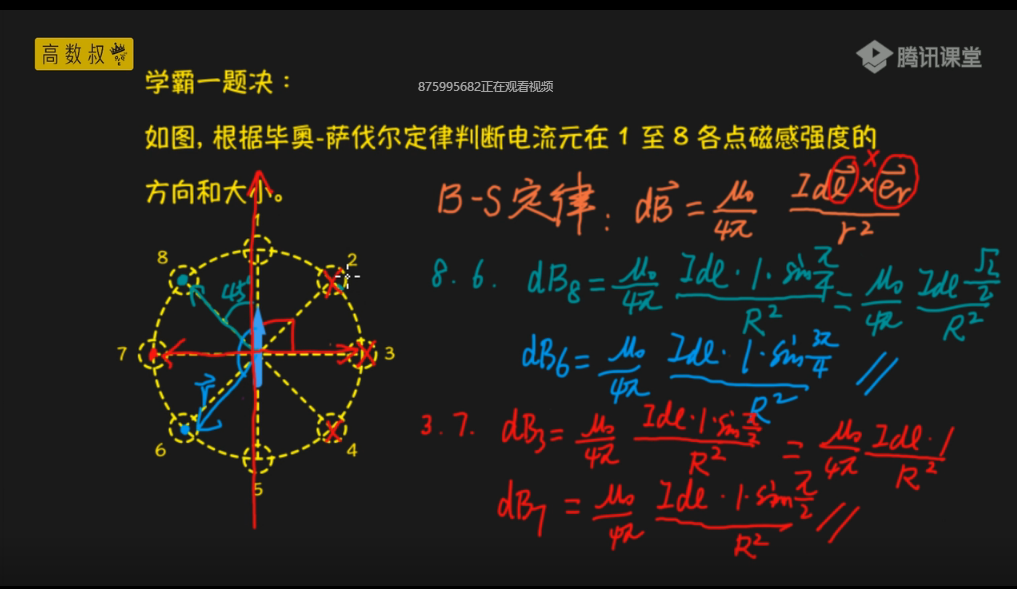 高数叔
腾讯课堂
学霸一题决：
875995682正在观看视频
如图, 根据毕奥-萨伐尔定律判断电流元在 1 至 8 各点磁感强度的
方向和大小。
B-S定律: dB⃗ = μ₀/4π (Idl⃗ × e⃗r)/r²
×
8.6. dB₈ = μ₀/4π (Idl·1·sin π/4)/R² = μ₀/4π (Idl √2/2)/R²
dB₆ = μ₀/4π (Idl·1·sin 3π/4)/R² //
3.7. dB₃ = μ₀/4π (Idl·1·sin π/2)/R² = μ₀/4π (Idl·1)/R²
dB₇ = μ₀/4π (Idl·1·sin π/2)/R² //
1
8
2
45°
7
3
r⃗
6
4
5